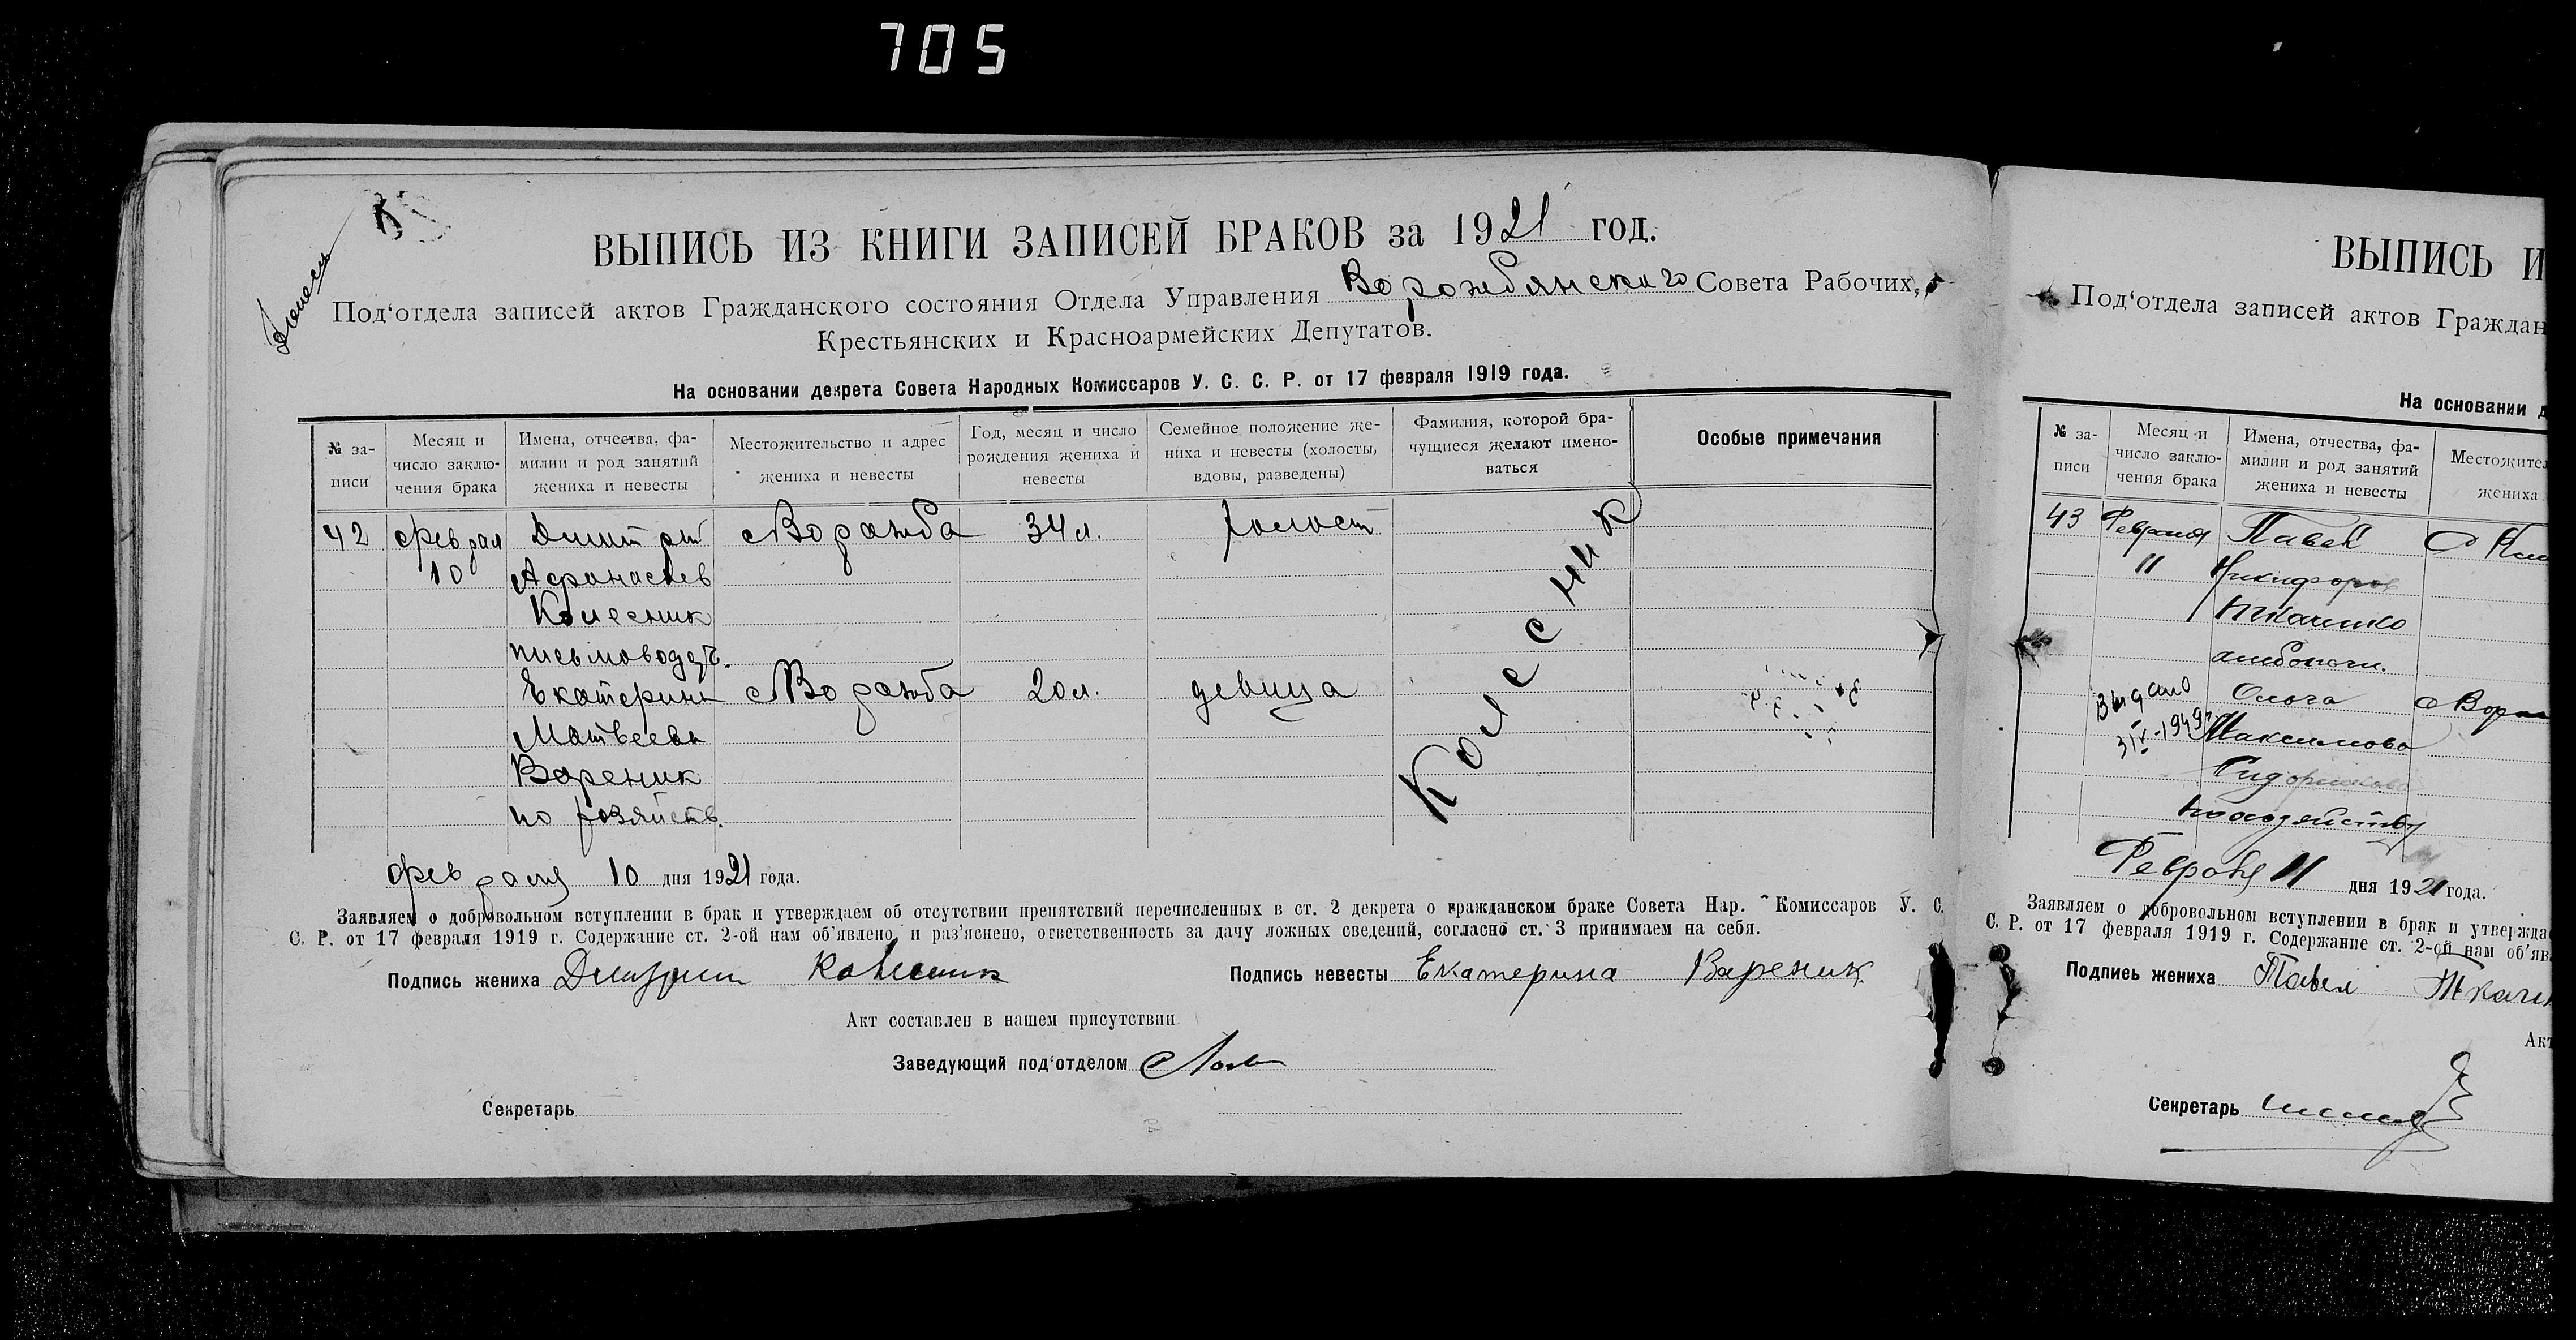 705
ВЫПИСЬ ИЗ КНИГИ ЗАПИСЕЙ БРАКОВ за 1921 год.
Под‘отдела записей актов Гражданского состояния Отдела Управления Ворожбянского Совета Рабочих,
Крестьянских и Красноармейских Депутатов.
На основании декрета Совета Народных Комиссаров У. С. С. Р. от 17 февраля 1919 года.
№ за-
писи
Месяц и
число заклю-
чения брака
Имена, отчества, фа-
милии и род занятий
жениха и невесты
Местожительство и адрес
жениха и невесты
Год, месяц и число
рождения жениха и
невесты
Семейное положение же-
ниха и невесты (холосты,
вдовы, разведены)
Фамилия, которой бра-
чущиеся желают имено-
ваться
Особые примечания
42 Феврал Димитрий с Ворожба 34 л. холост
10 Афанасьев
Колесник
письмоводт.
Екатерина с Ворожба 20 л. девица
Матвеева
Вареник
по хозяйств.
Колесник
февраля 10 дня 1921 года.
Заявляем о добровольном вступлении в брак и утверждаем об отсутствии препятствий перечисленных в ст. 2 декрета о гражданском браке Совета Нар. Комиссаров У. С.
С. Р. от 17 февраля 1919 г. Содержание ст. 2-ой нам об‘явлено и раз‘яснено, ответственность за дачу ложных сведений, согласно ст. 3 принимаем на себя.
Подпись жениха Димитрий Колесник Подпись невесты Екатерина Вареник
Акт составлен в нашем присутствии
Заведующий под‘отделом
Секретарь
ВЫПИСЬ И
Под‘отдела записей актов Граждан
На основании д
№ за-
писи
Месяц и
число заклю-
чения брака
Имена, отчества, фа-
милии и род занятий
жениха и невесты
Местожител
жениха
43 Февраля Павел
11 Никифоров
Ткаченко
хлебопаш.
Выдано Ольга с Воро
3/IV-1949г Максимова
по хозяйству
Февраля 11 дня 1921 года.
Заявляем о добровольном вступлении в брак и утвержда
С. Р. от 17 февраля 1919 г. Содержание ст. 2-ой нам об‘яв
Подпись жениха Павел Ткачен
Акт
Секретарь